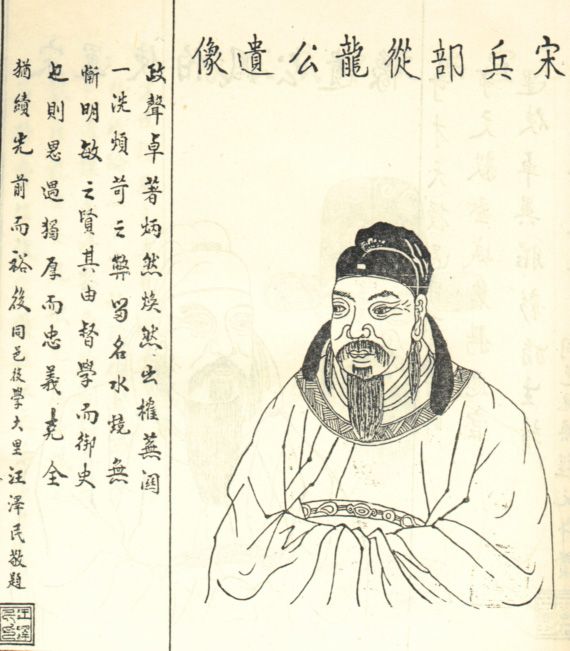 宋兵部從龍公遺像
政聲卓著炳然煥然出榷蕪關
一洗煩苛之弊留名水鏡無
慚明敏之賢其由督學而御史
也則恩遇獨厚而忠義克全
猶績先前而裕後同邑後學大里汪澤民敬題